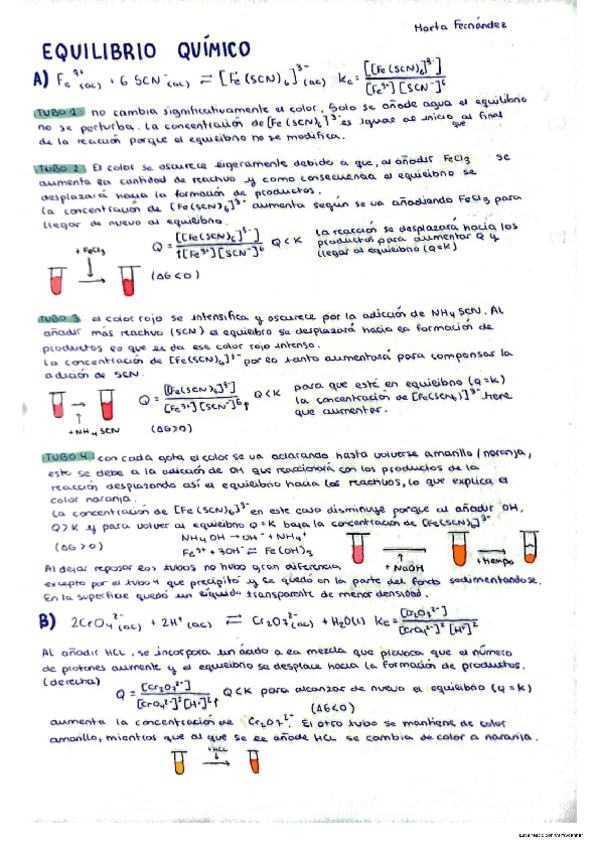 Marta Fernández
EQUILIBRIO QUÍMICO
A) Fe³⁺(ac) + 6 SCN⁻(ac) ⇌ [Fe(SCN)₆]³⁻(ac) Kc = [[Fe(SCN)₆]³⁻] / [Fe³⁺][SCN⁻]⁶
TUBO 1 no cambia significativamente el color. Solo se añade agua el equilibrio
no se perturba. La concentración de [Fe(SCN)₆]³⁻ es igual al inicio que al final
de la reacción porque el equilibrio no se modifica.
TUBO 2 El color se oscurece ligeramente debido a que, al añadir FeCl₃ se
aumenta la cantidad de reactivo y como consecuencia el equilibrio se
desplazará hacia la formación de productos.
La concentración de [Fe(SCN)₆]³⁻ aumenta según se va añadiendo FeCl₃ para
llegar de nuevo al equilibrio.
+ FeCl₃
Q = [[Fe(SCN)₆]³⁻] / ↑[Fe³⁺][SCN⁻]⁶ Q < K
(ΔG < 0)
La reacción se desplazará hacia los
productos para aumentar Q y
llegar al equilibrio (Q=K)
TUBO 3 el color rojo se intensifica y oscurece por la adicción de NH₄SCN. Al
añadir más reactivo (SCN) el equilibrio se desplazará hacia la formación de
productos lo que es da ese color rojo intenso.
La concentración de [Fe(SCN)₆]³⁻ por lo tanto aumentará para compensar la
adición de SCN.
+ NH₄SCN
Q = [[Fe(SCN)₆]³⁻] / [Fe³⁺][SCN⁻]⁶↑ Q < K
(ΔG>0)
para que esté en equilibrio (Q=K)
la concentración de [Fe(SCN)₆]³⁻ tiene
que aumentar.
TUBO 4 con cada gota el color se va aclarando hasta volverse amarillo/naranja,
este se debe a la adicción de OH que reaccionará con los productos de la
reacción desplazando así el equilibrio hacia los reactivos, lo que explica el
color naranja.
La concentración de [Fe(SCN)₆]³⁻ en este caso disminuye porque al añadir OH,
Q > K y para volver al equilibrio Q = K baja la concentración de [Fe(SCN)₆]³⁻
NH₄OH → OH⁻ + NH₄⁺
(ΔG > 0)
Fe³⁺ + 3OH⁻ ⇌ Fe(OH)₃
+ NaOH
+ tiempo
Al dejar reposar los tubos no hubo gran diferencia
excepto por el tubo 4 que precipitó y se quedó en la parte del fondo sedimentandose.
En la superficie quedó un líquido transparente de menor densidad.
B) 2CrO₄²⁻(ac) + 2H⁺(ac) ⇌ Cr₂O₇²⁻(ac) + H₂O(l) Kc = [Cr₂O₇²⁻] / [CrO₄²⁻]²[H⁺]²
Al añadir HCl, se incorpora un ácido a la mezcla que provoca que el número
de protones aumente y el equilibrio se desplace hacia la formación de productos.
(derecha)
Q = [Cr₂O₇²⁻] / [CrO₄²⁻]²[H⁺]²↑ Q<K para alcanzar de nuevo el equilibrio (Q = K)
(ΔG<0)
aumenta la concentración de Cr₂O₇²⁻. El otro tubo se mantiene de color
amarillo, mientras que al que se le añade HCl se cambia de color a naranja.
+HCl